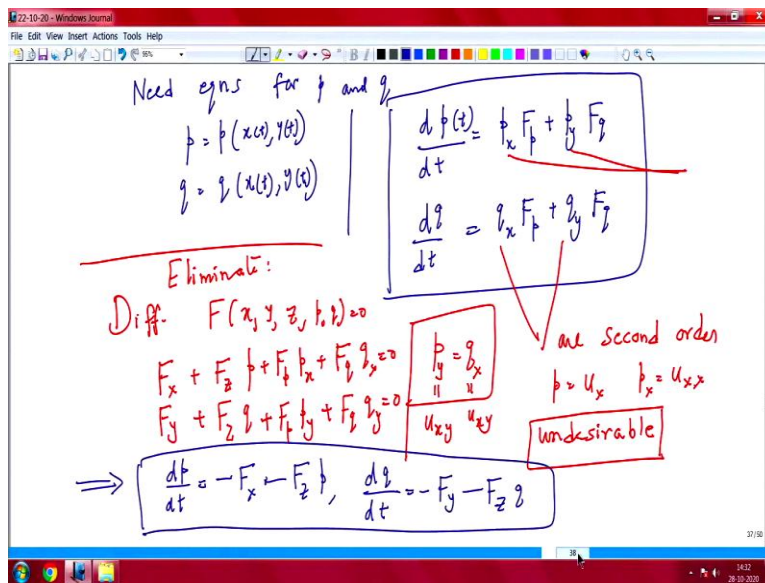 22-10-20 - Windows Journal
File Edit View Insert Actions Tools Help
Need eqns for p and q
p = p(x(t), y(t))
q = q(x(t), y(t))
dp(t)/dt = p_x F_p + p_y F_q
dq/dt = q_x F_p + q_y F_q
Eliminate:
Diff. F(x, y, z, p, q) = 0
F_x + F_z p + F_p p_x + F_q q_x = 0
F_y + F_z q + F_p p_y + F_q q_y = 0
p_y = q_x
u_xy u_xy
are second order
p = u_x p_x = u_xx
undesirable
⇒ dp/dt = -F_x - F_z p, dq/dt = -F_y - F_z q
37/50
38
14:32
28-10-2020